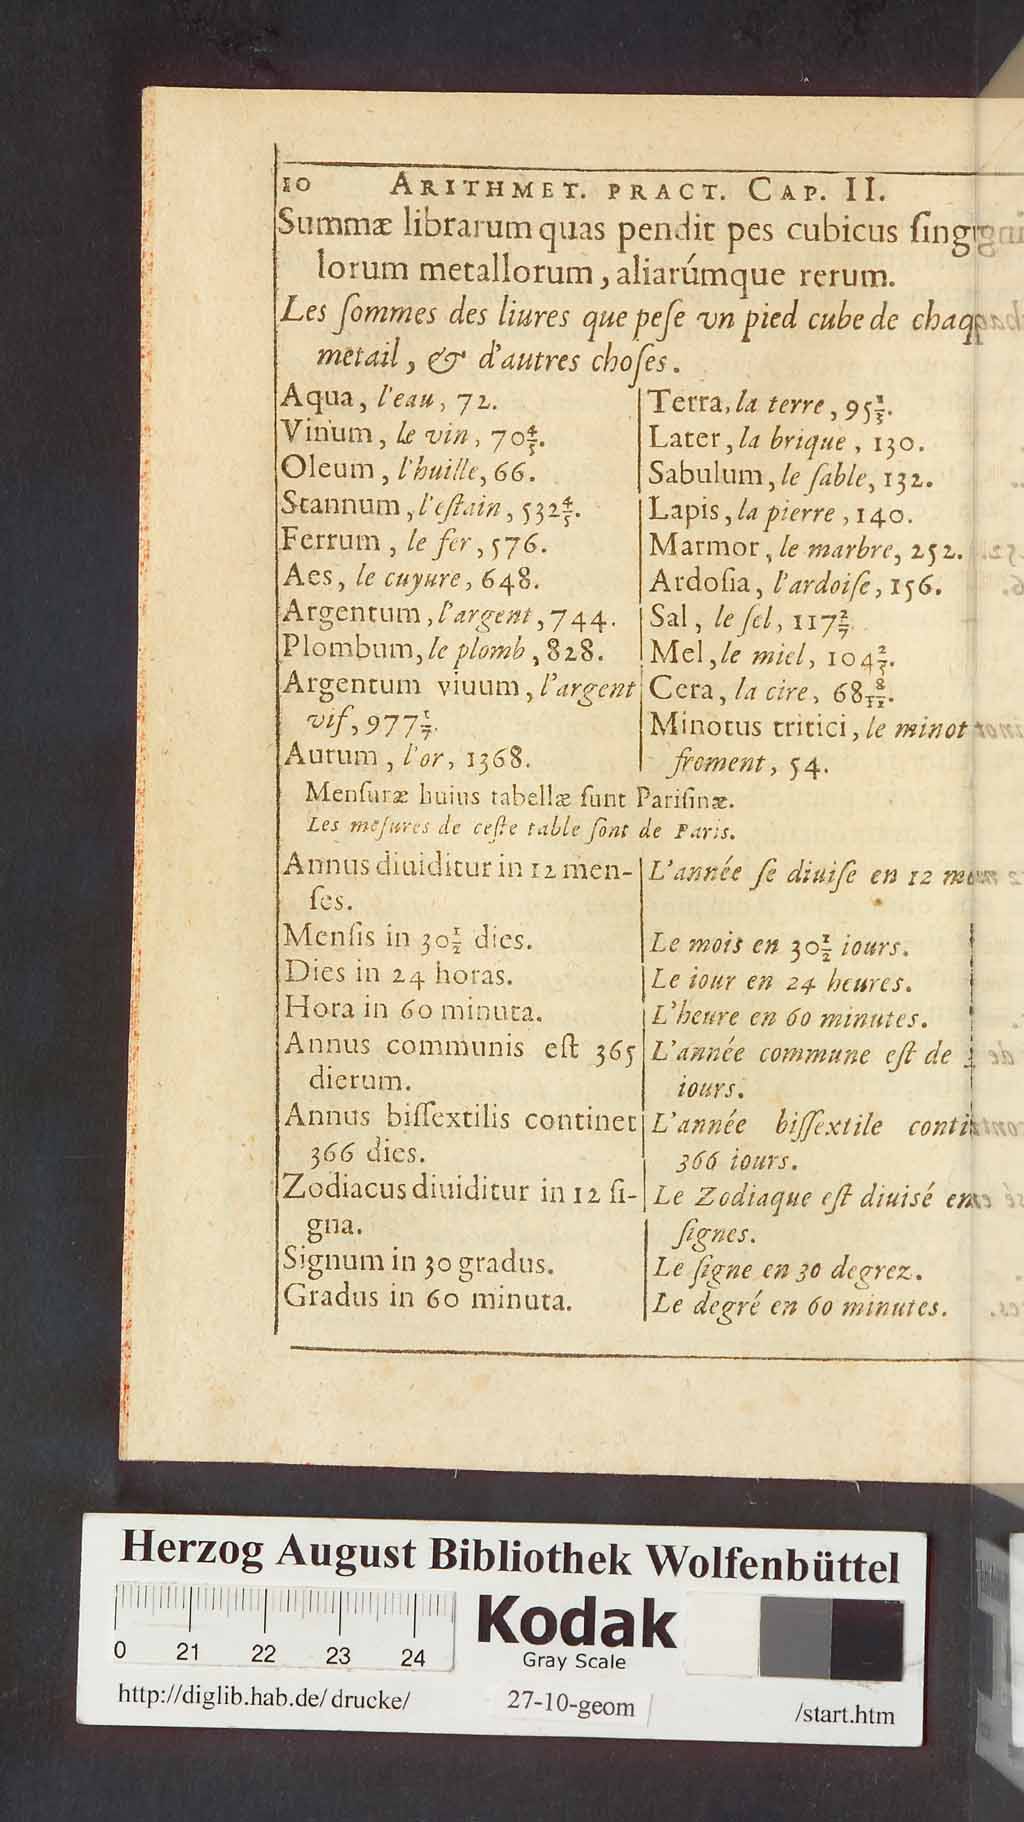 10 ARITHMET. PRACT. CAP. II.
Summæ librarum quas pendit pes cubicus ſingu
lorum metallorum, aliarúmque rerum.
Les ſommes des liures que peſe vn pied cube de chaq
metail, & d'autres choſes.
Aqua, l'eau, 72.
Vinum, le vin, 70 4/5.
Oleum, l'huille, 66.
Stannum, l'eſtain, 532 4/5.
Ferrum, le fer, 576.
Aes, le cuyure, 648.
Argentum, l'argent, 744.
Plombum, le plomb, 828.
Argentum viuum, l'argent
vif, 977 1/7.
Aurum, l'or, 1368.
Terra, la terre, 95
Later, la brique, 130.
Sabulum, le ſable, 132.
Lapis, la pierre, 140.
Marmor, le marbre, 252.
Ardoſia, l'ardoiſe, 156.
Sal, le ſel, 117 2/7.
Mel, le miel, 104
Cera, la cire, 68
Minotus tritici, le minot
froment, 54.
Menſuræ huius tabellæ ſunt Pariſinæ.
Les meſures de ceſte table ſont de Paris.
Annus diuiditur in 12 men-
ſes.
Menſis in 30 1/2 dies.
Dies in 24 horas.
Hora in 60 minuta.
Annus communis eſt 365
dierum.
Annus biſſextilis continet
366 dies.
Zodiacus diuiditur in 12 ſi-
gna.
Signum in 30 gradus.
Gradus in 60 minuta.
L'année ſe diuiſe en 12 mo
Le mois en 30 1/2 iours.
Le iour en 24 heures.
L'heure en 60 minutes.
L'année commune eſt de
iours.
L'année biſſextile conti
366 iours.
Le Zodiaque eſt diuisé en
ſignes.
Le ſigne en 30 degrez.
Le degré en 60 minutes.
Herzog August Bibliothek Wolfenbüttel
0 21 22 23 24
Kodak
Gray Scale
http://diglib.hab.de/drucke/ 27-10-geom /start.htm